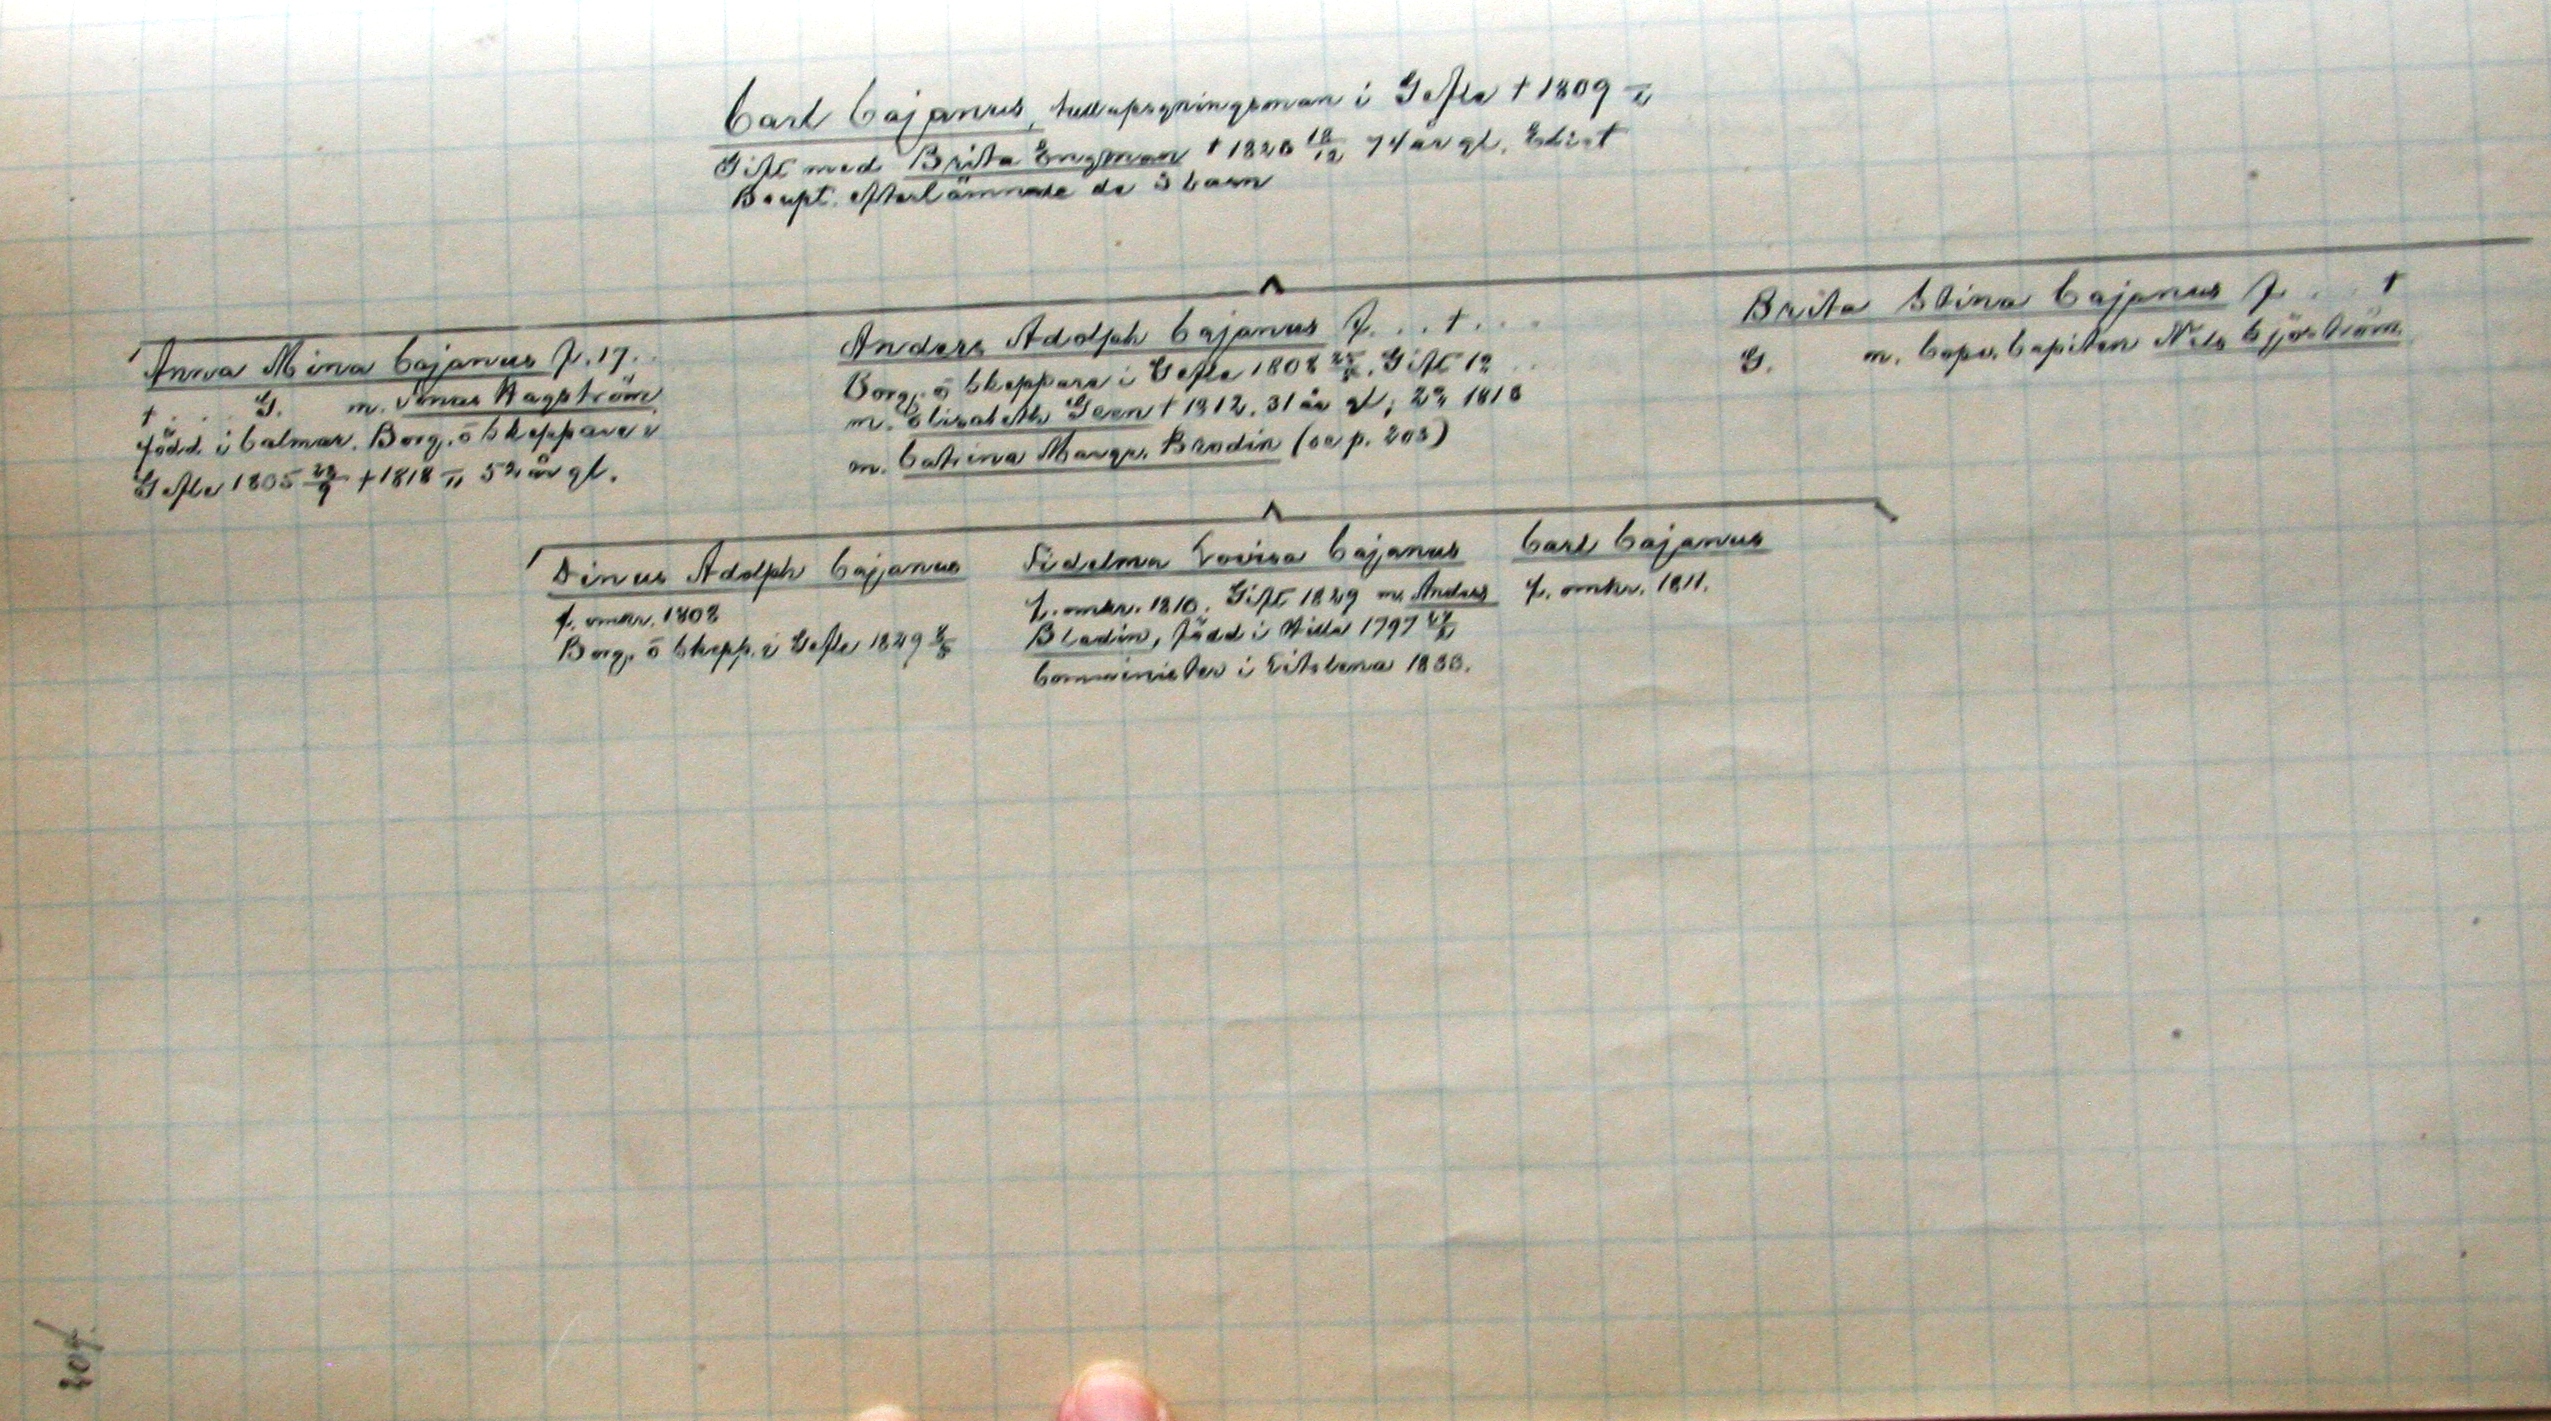 Carl Cajanus, tulluppsyningsman i Gefle † 1809
Gift med Brita Engman † 1826 18/12 74 år gl. Enligt
Boupt. efterlämnade de 3 barn
Anna Mina Cajanus f. 17..
†.... G. m. Jonas Hagström
född i Calmar. Borg. o Skeppare i
Gefle 1805 23/9 † 1818 52 år gl.
Anders Adolph Cajanus f... †...
Borg. o Skeppare i Gefle 1808 Gift 1°
m. Elisabeth Geen † 1812. 31 år gl; 2° 1818
m. Catrina Margr. Brodin (se p. 203)
Brita Stina Cajanus f... †
G. m. Copv. Capiten Nils Sjöström
Linus Adolph Cajanus
f. omkr. 1808
Borg. o Skepp. i Gefle 1829
Fidelma Lovisa Cajanus
f. omkr. 1810. Gift 1829 m. Anders
Bladin, född i Tillie 1797
Comminister i Vitsbena 1833.
Carl Cajanus
f. omkr. 1811.
204.